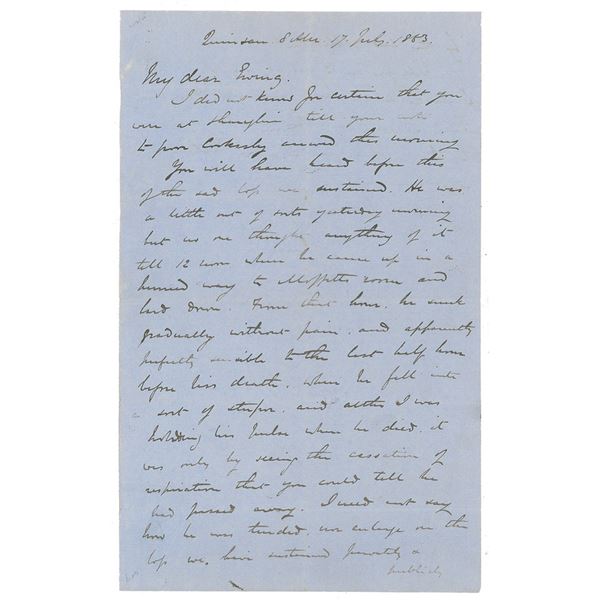 Quinsan 8 AM 17. July. 1863.
My dear Ewing.
I did not know for certain that you
were at Shanghai till your note
to poor Cookesley arrived this morning
You will have heard before this
of the sad loss we sustained. He was
a little out of sorts yesterday morning
but no one thought anything of it
till 12 noon when he came up in a
hurried way to Moffitts room and
laid down. From that hour, he sunk
gradually without pain, and apparently
perfectly sensible to the last half hour
before his death, when he fell into
a sort of stupor, and altho I was
holding his pulse when he died, it
was only by seeing the cessation of
respiration that you could tell he
had passed away. I need not say
how he was tended, nor enlarge on the
loss we have sustained privately &
publicly